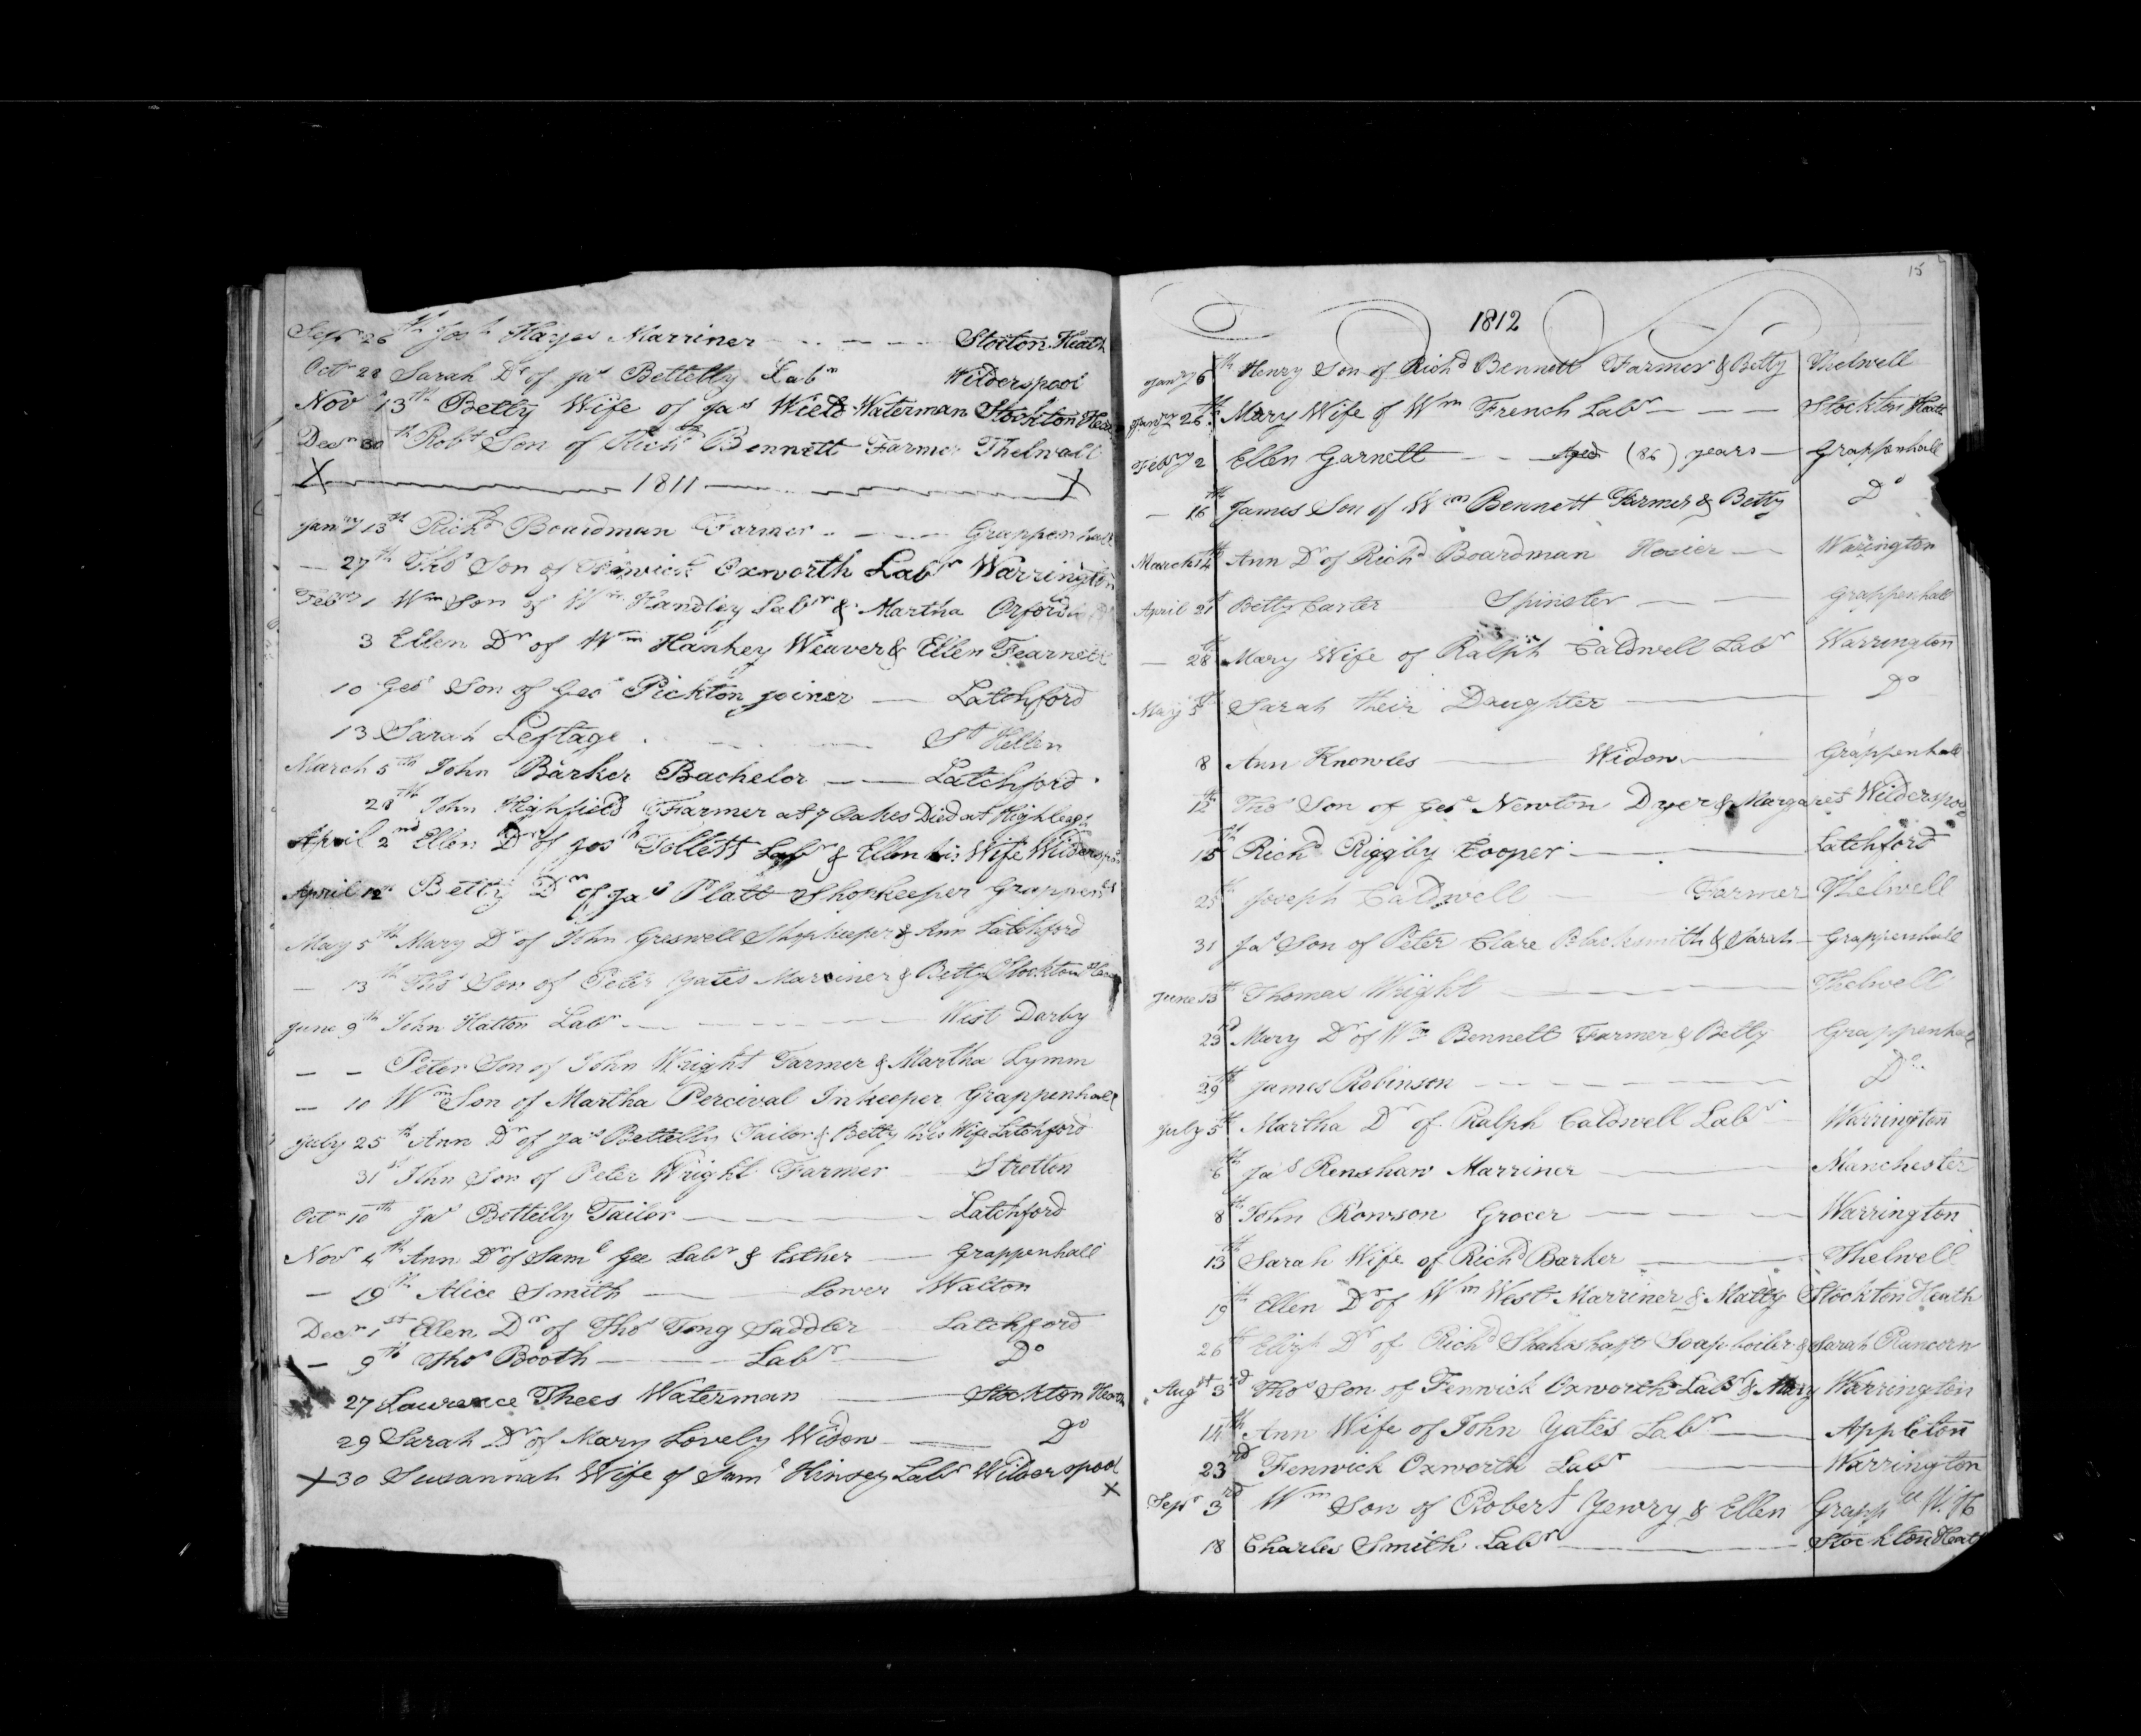 Sepr 26th Josh Hayes Marriner Stocton Heath
Octr 28 Sarah Dr of Jas Bettelly Labr Wilderspool
Novr 13th Betty Wife of Jas Wield Waterman Stockton Heath
Decr 30th Robt Son of Richd Bennett Farmer Thelwall
X 1811 X
Jany 13th Richd Boardman Farmer Grappenhall
— 27th Thos Son of Fenwick Oxworth Labr Warrington
Febry 1 Wm Son of Wm Handley Labr & Martha Orford
3 Ellen Dr of Wm Hankey Weaver & Ellen Fearnett
10 Geo Son of Geo Pickton joiner — Latchford
13 Sarah Leftage St Hellen
March 5th John Barker Bachelor — Latchford
28th John Highfield Farmer at 7 Oakes Died at Highleagh
April 2nd Ellen Dr of Josh Tollett Labr & Ellen his Wife Wilderspool
April 12th Betty Dr of Jas Platt Shopkeeper Grappenll
May 5th Mary Dr of John Greswell Shopkeeper & Ann Latchford
— 13th Thos Son of Peter Yates Marriner & Betty Stockton Heath
June 9th John Hatton Labr West Darby
— — Peter Son of John Wright Farmer & Martha Lymm
— 10 Wm Son of Martha Percival Inkeeper Grappenhall
July 25th Ann Dr of Jas Bettelly Tailor & Betty his Wife Latchford
31st John Son of Peter Wright Farmer Stretton
Octr 10th Jas Bettelly Tailor — Latchford
Novr 4th Ann Dr of Saml Gee Labr & Esther — Grappenhall
— 19th Alice Smith — Lower Walton
Decr 1st Elen Dr of Thos Tong Saddler Latchford
— 9th Thos Booth — Labr — Do
27 Lawrence Thees Waterman — Stockton Heath
29 Sarah Dr of Mary Lovely Widow — Do
X 30 Susannah Wife of Saml Kinsey Labr Wilderspool X
15
1812
Jany 6th Henry Son of Richd Bennett Farmer & Betty Thelwell
Jany 26th Mary Wife of Wm French Labr — Stockton Heath
Febry 2 Ellen Garnett — Aged (86) years — Grappenhall
— 16th James Son of Wm Bennett Farmer & Betty Do
March 14th Ann Dr of Richd Boardman Hosier — Warington
April 21st Betty Carter Spinster — Grappenhall
— 28th Mary Wife of Ralph Caldwell Labr Warrington
May 5th Sarah their Daughter — Do
8 Ann Knowles — Widow — Grappenhall
12th Thos Son of Geoe Newton Dyer & Margaret Wilderspool
15th Richd Riggby Cooper — Latchford
25th Joseph Caldwell — Farmer Thelwell
31 Jas Son of Peter Clare Blacksmith & Sarah — Grappenhall
June 13th Thomas Wright — Thelwell
23d Mary Dr of Wm Bennett Farmer & Betty Grappenhall
29th James Robinson — Do
July 5th Martha Dr of Ralph Caldwell Labr Warrington
6th Jas Renshaw Marriner — Manchester
8th John Rowson Grocer — Warrington
13th Sarah Wife of Richd Barker — Thelwell
19th Ellen Dr of Wm West Marriner & Matty Stockton Heath
26th Elizh Dr of Richd Shakeshaft Soap-boiler & Sarah Runcorn
Augst 3rd Thos Son of Fenwick Oxworth Labr & Mary Warrington
14th Ann Wife of John Yates Labr — Appleton
23rd Fenwick Oxworth Labr — Warrington
Sepr 3rd Wm Son of Robert Yewry & Ellen Grappll
18 Charles Smith Labr — Stockton Heat